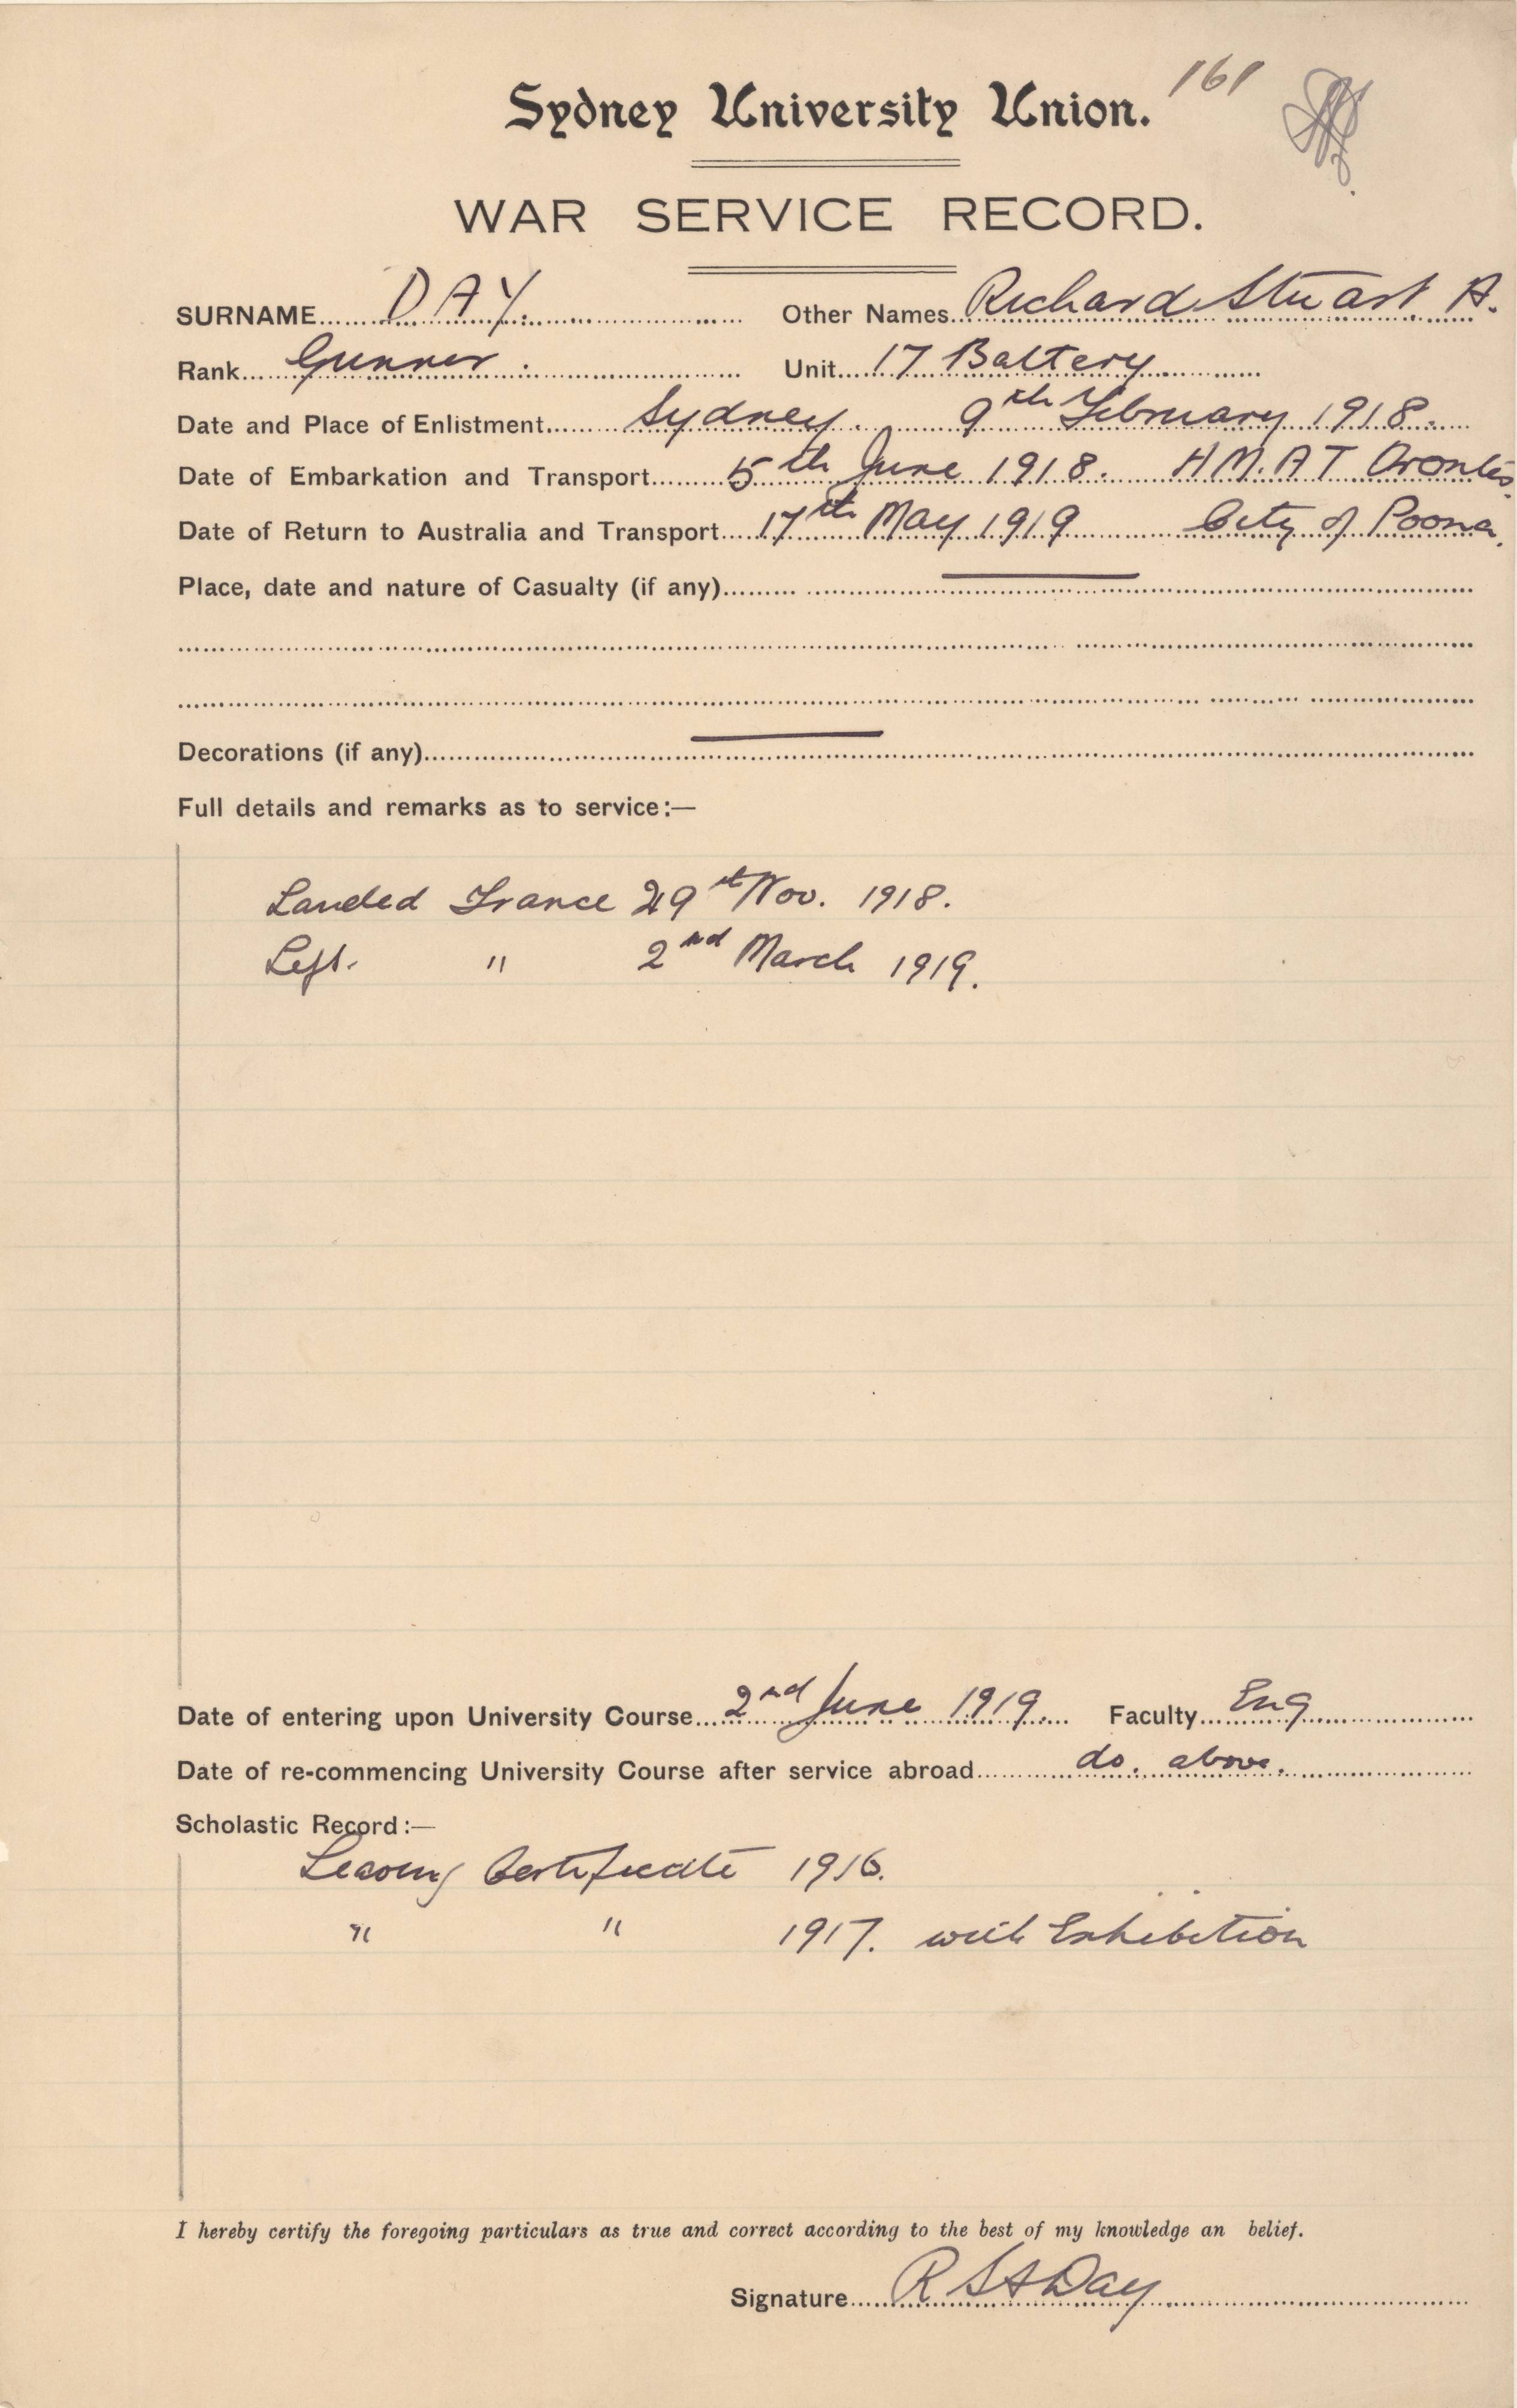 161
Sydney University Union.
WAR SERVICE RECORD.
SURNAME DAY. Other Names Richard Stuart A.
Rank Gunner. Unit 17 Battery
Date and Place of Enlistment Sydney. 9th February 1918.
Date of Embarkation and Transport 5th June 1918. H.M.A.T Orontes.
Date of Return to Australia and Transport 17th May 1919 City of Poona.
Place, date and nature of Casualty (if any) —
Decorations (if any) —
Full details and remarks as to service:—
Landed France Nov. 1918.
Left. " 2nd March 1919.
Date of entering upon University Course 2nd June 1919. Faculty Eng
Date of re-commencing University Course after service abroad do. above.
Scholastic Record:—
Leaving Certificate 1916.
" " 1917. with Exhibition
I hereby certify the foregoing particulars as true and correct according to the best of my knowledge an belief.
Signature R S A Day